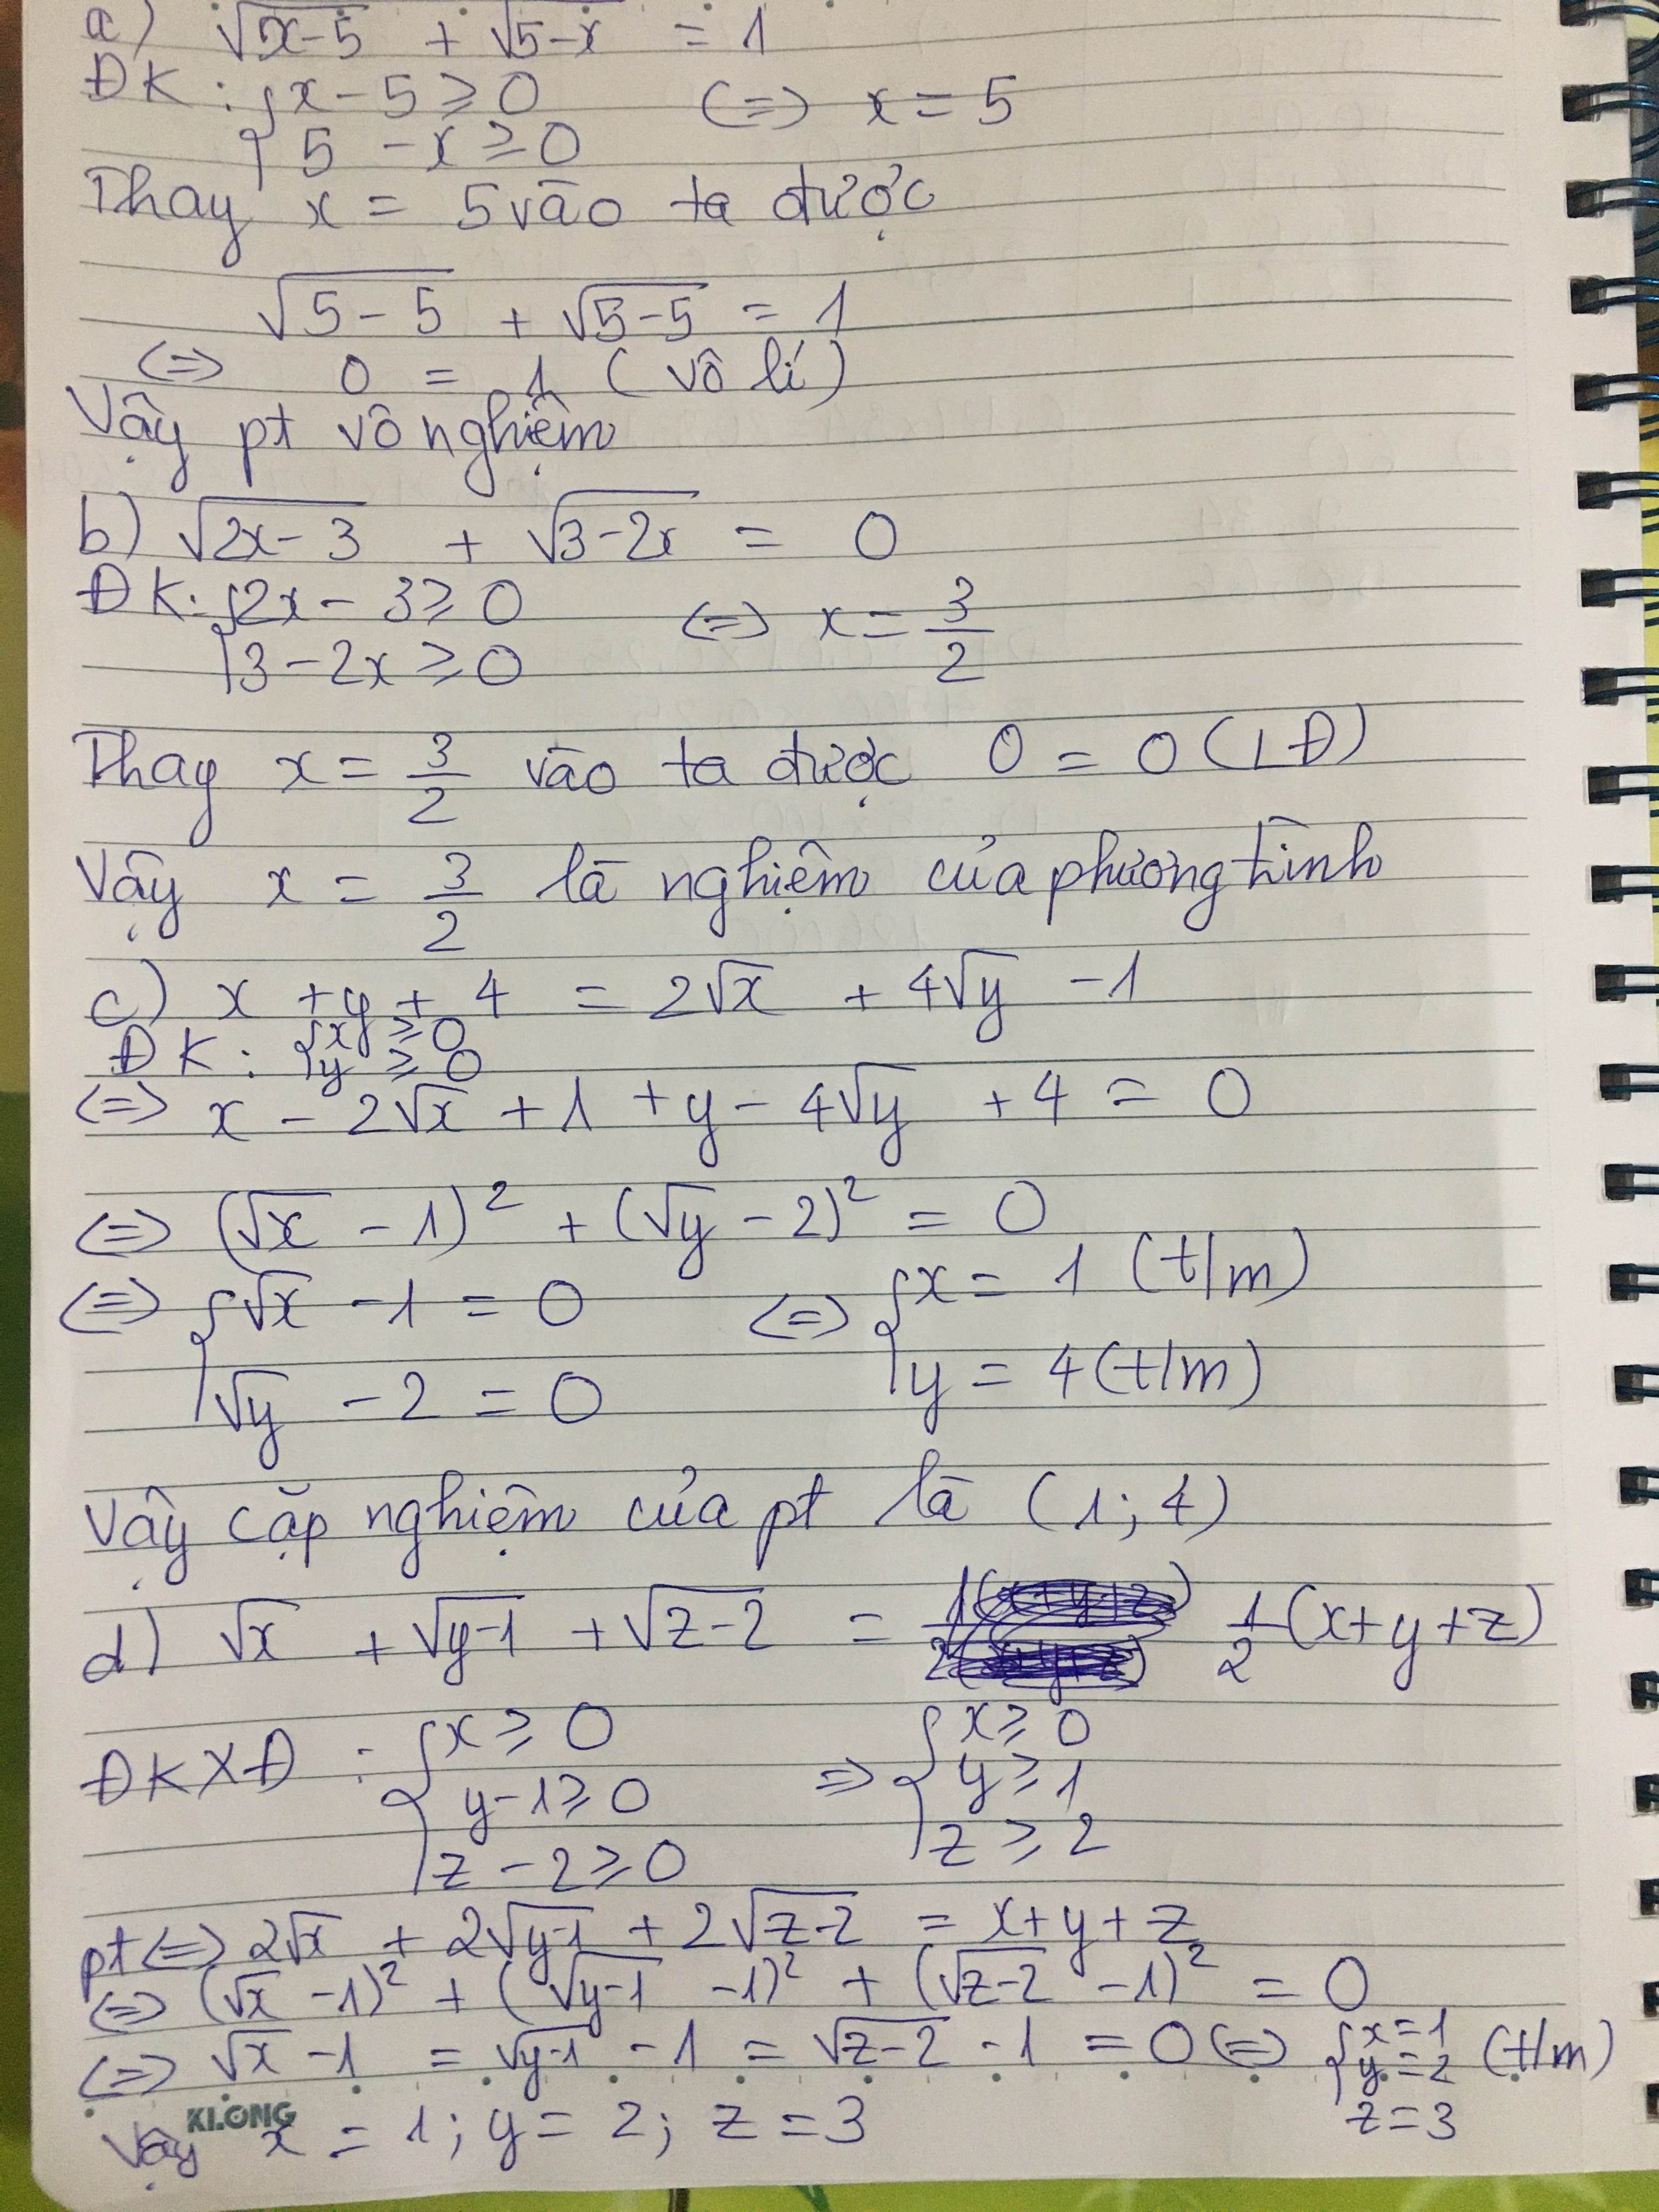 a) √x-5 + √5-x = 1
ĐK : { x - 5 ≥ 0 (=) x = 5
5 - x ≥ 0
Thay x = 5 vào ta được
√5-5 + √5-5 = 1
(=) 0 = 1 (vô lí)
Vậy pt vô nghiệm
b) √2x-3 + √3-2x = 0
ĐK: { 2x - 3 ≥ 0 (=) x = 3/2
3 - 2x ≥ 0
Thay x = 3/2 vào ta được 0 = 0 (LĐ)
Vậy x = 3/2 là nghiệm của phương tình
c) x + y + 4 = 2√x + 4√y - 1
ĐK : { x ≥ 0
y ≥ 0
(=) x - 2√x + 1 + y - 4√y + 4 = 0
(=) (√x - 1)² + (√y - 2)² = 0
(=) { √x - 1 = 0 (=) { x = 1 (t/m)
√y - 2 = 0 y = 4 (t/m)
Vậy cặp nghiệm của pt là (1; 4)
d) √x + √y-1 + √z-2 = 1/2 (x+y+z)
ĐKXĐ : { x ≥ 0 => { x ≥ 0
y-1 ≥ 0 y ≥ 1
z - 2 ≥ 0 z ≥ 2
pt (=) 2√x + 2√y-1 + 2√z-2 = x+y+z
(=) (√x - 1)² + (√y-1 - 1)² + (√z-2 - 1)² = 0
(=) √x - 1 = √y-1 - 1 = √z-2 - 1 = 0 (=) { x = 1
y = 2 (t/m)
z = 3
KLONG
Vậy x = 1; y = 2; z = 3